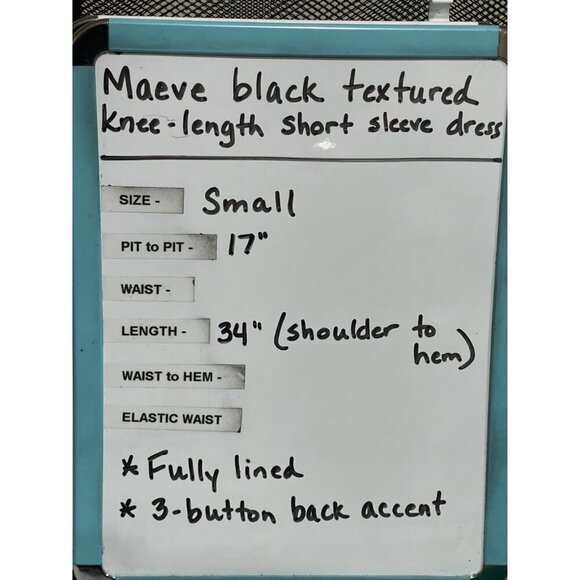 Maeve black textured
knee-length short sleeve dress
SIZE - Small
PIT to PIT - 17"
WAIST -
LENGTH - 34" (shoulder to
hem)
WAIST to HEM -
ELASTIC WAIST
* Fully lined
* 3-button back accent